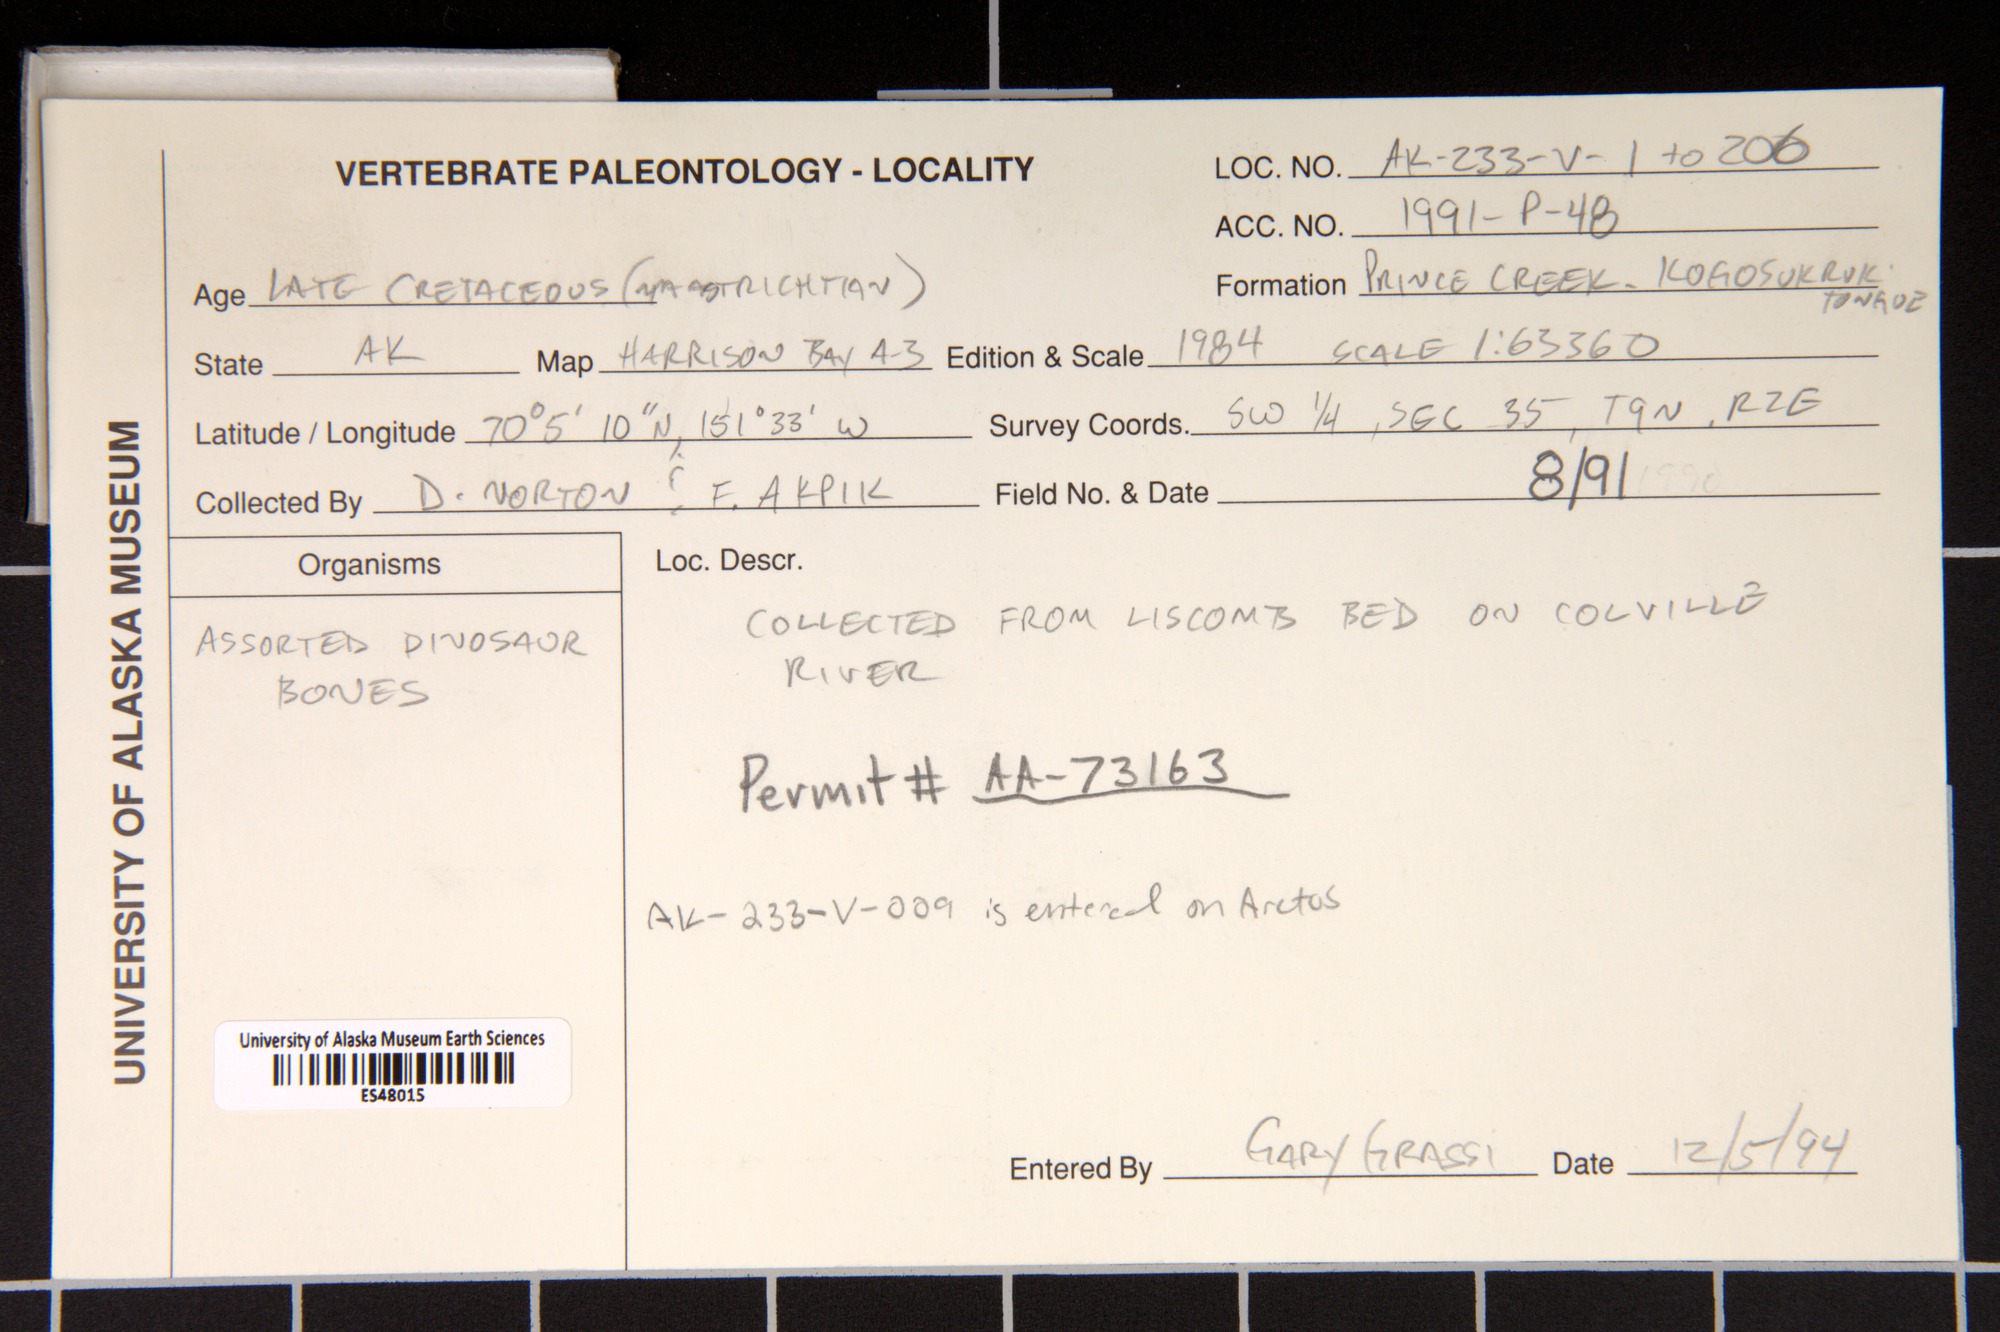 UNIVERSITY OF ALASKA MUSEUM
VERTEBRATE PALEONTOLOGY - LOCALITY
LOC. NO. AK-233-V-1 to 206
ACC. NO. 1991-P-48
Formation PRINCE CREEK - KOGOSUKRUK TONGUE
Age LATE CRETACEOUS (MAASTRICHTIAN)
State AK Map HARRISON BAY A-3 Edition & Scale 1984 SCALE 1:63360
Latitude / Longitude 70°5' 10"N, 151°33' W Survey Coords. SW 1/4, SEC 35, T9N, R2E
Collected By D. NORTON & F. AKPIK Field No. & Date 8/91 1990
Organisms
ASSORTED DINOSAUR
BONES
Loc. Descr.
COLLECTED FROM LISCOMB BED ON COLVILLE
RIVER
Permit # AA-73163
AK-233-V-009 is entered on Arctos
University of Alaska Museum Earth Sciences
ES48015
Entered By GARY GRASSI Date 12/5/94